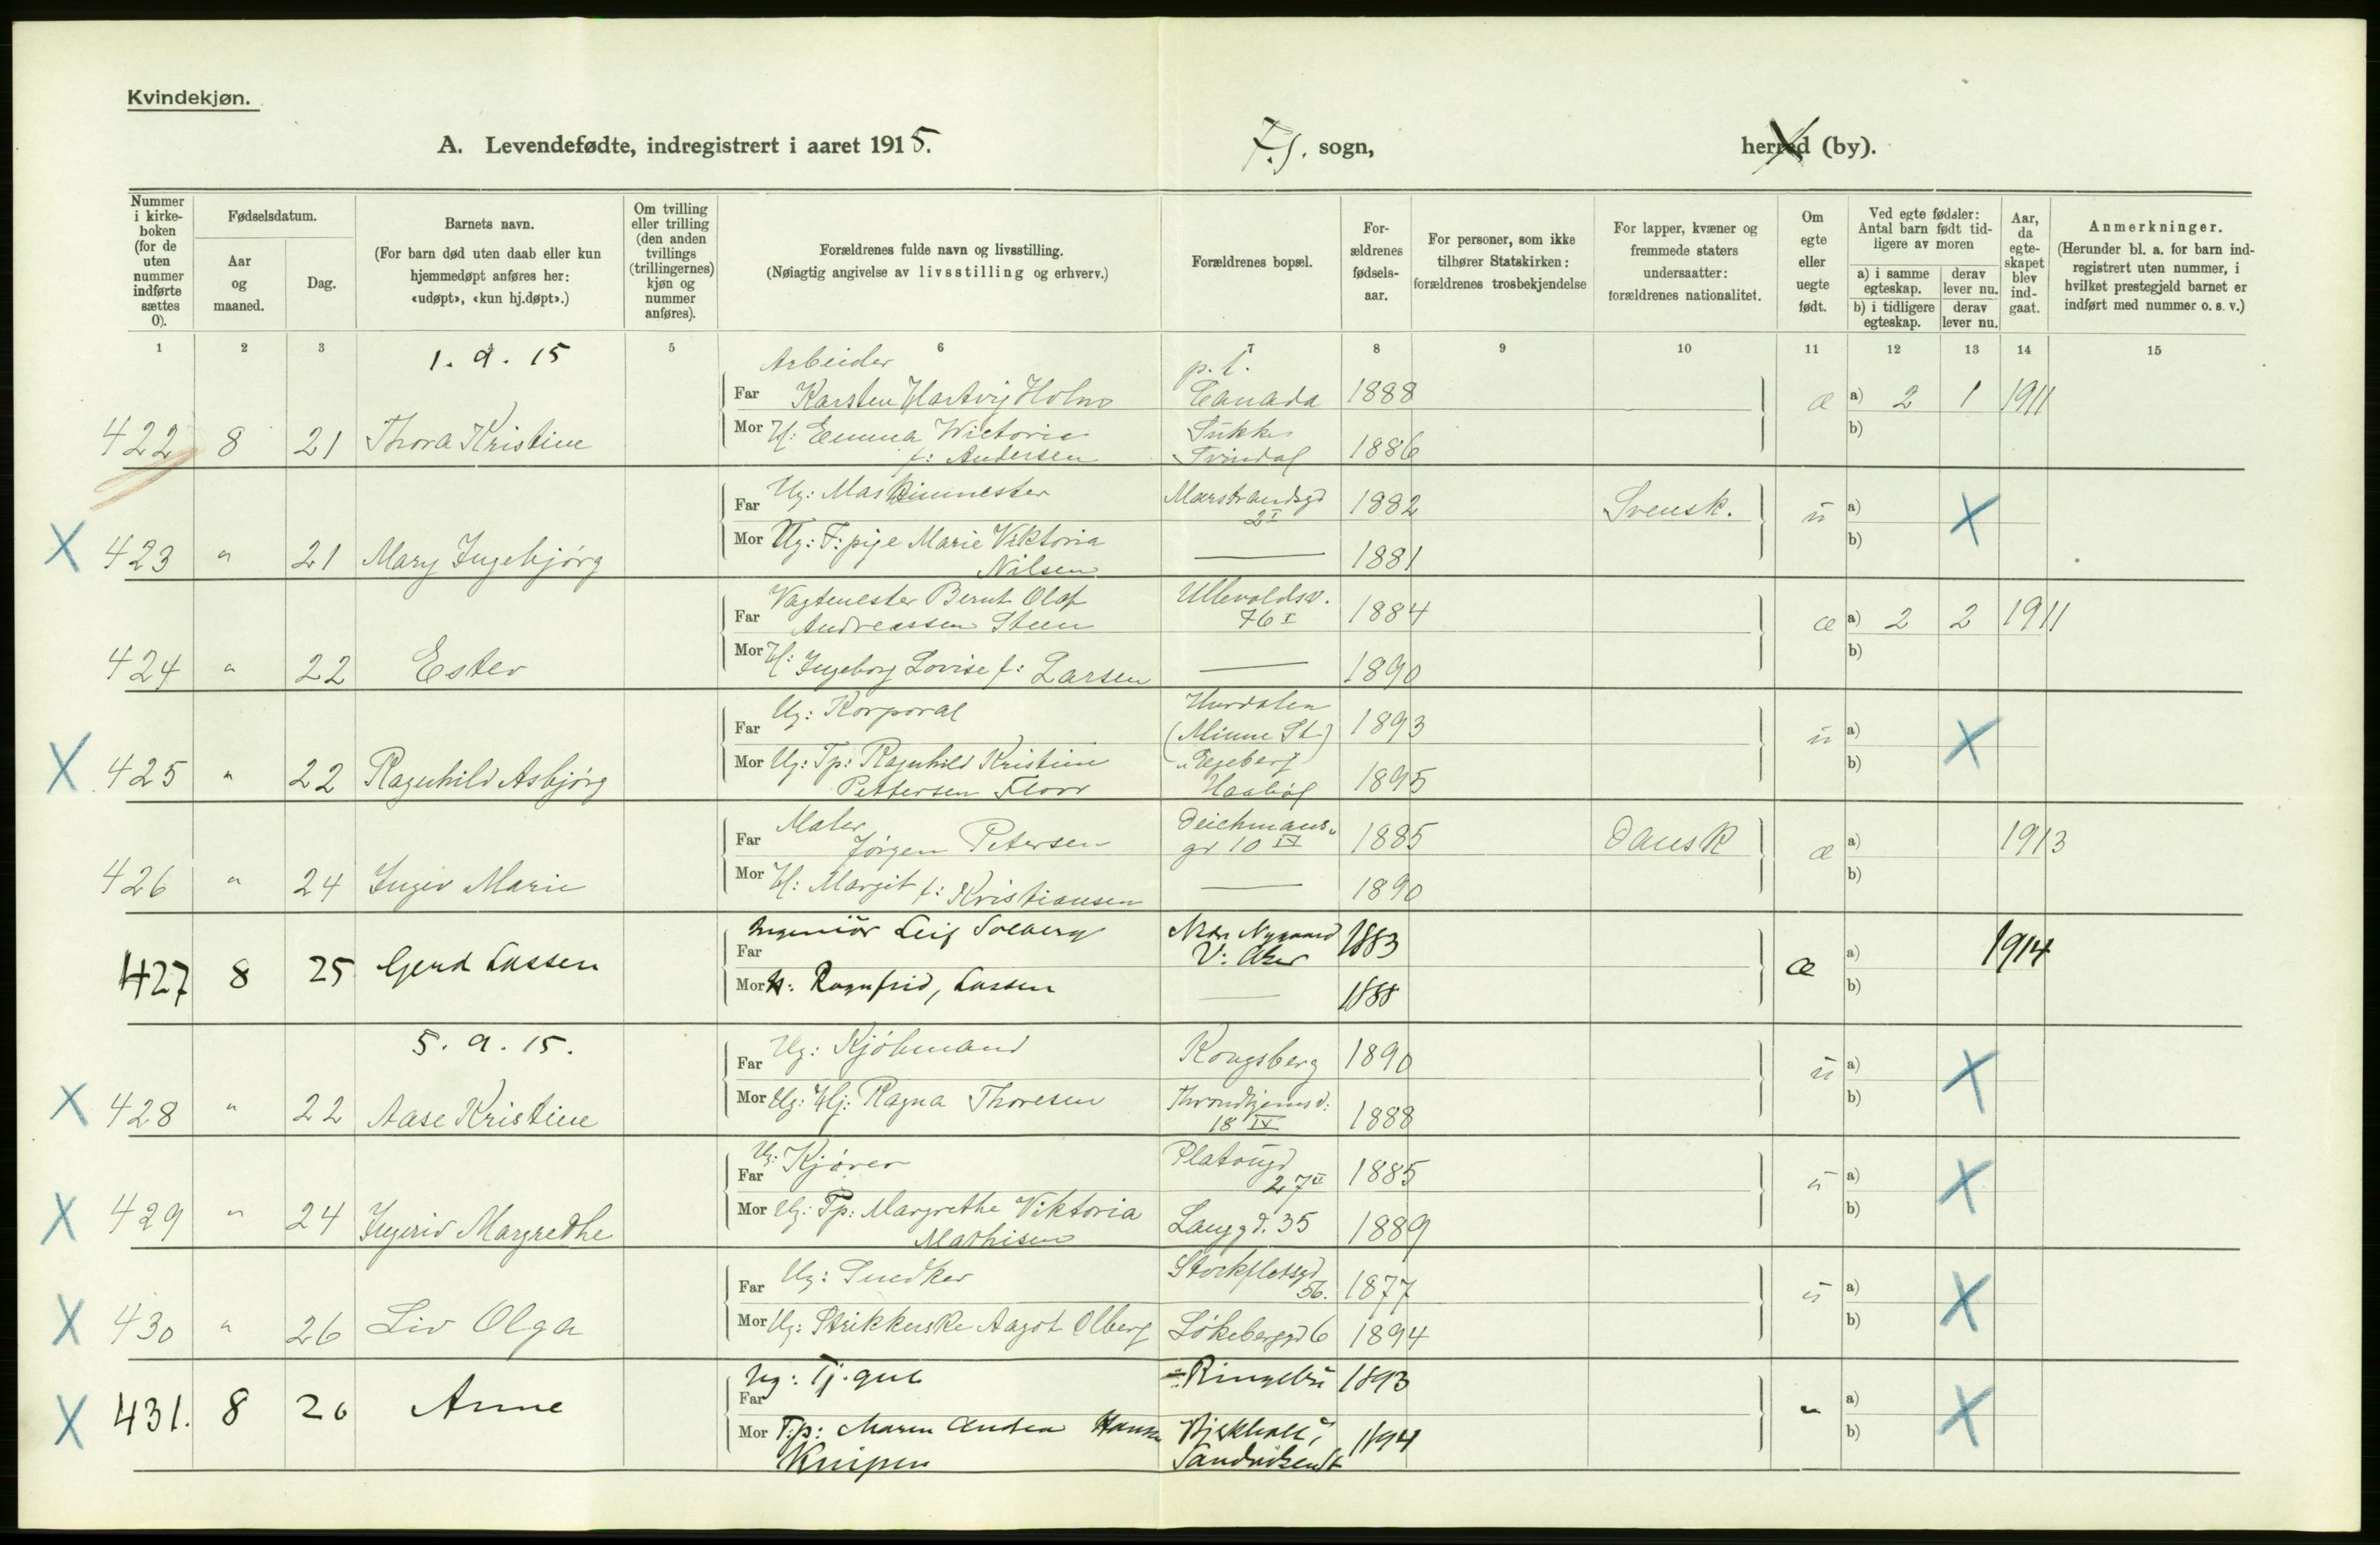 Kvindekjøn.
A. Levendefødte, indregistrert i aaret 1915.
F.S. sogn,
herred (by).
Nummer i kirke-boken (for de uten nummer indførte sættes 0).
Fødselsdatum.
Aar og maaned.
Dag.
Barnets navn.
(For barn død uten daab eller kun hjemmedøpt anføres her: «udøpt», «kun hj.døpt».)
Om tvilling eller trilling (den anden tvillings (trillingernes) kjøn og nummer anføres).
Forældrenes fulde navn og livsstilling.
(Nøiagtig angivelse av livsstilling og erhverv.)
Forældrenes bopæl.
For-ældrenes fødsels-aar.
For personer, som ikke tilhører Statskirken: forældrenes trosbekjendelse
For lapper, kvæner og fremmede staters undersaatter: forældrenes nationalitet.
Om egte eller uegte født.
Ved egte fødsler: Antal barn født tid-ligere av moren
a) i samme egteskap.
derav lever nu.
b) i tidligere egteskap.
derav lever nu.
Aar, da egte-skapet blev ind-gaat.
Anmerkninger.
(Herunder bl. a. for barn ind-registrert uten nummer, i hvilket prestegjeld barnet er indført med nummer o. s. v.)
1 2 3 4 5 6 7 8 9 10 11 12 13 14 15
1. 9. 15
Arbeider p. t.
Far Karsten Hartvig Holm Canada 1888 æ a) 2 1 1911
422 8 21 Thora Kristine Mor H: Emma Wictoria b)
f: Andersen 1886
Far Ug: Maskinmester Marstrandsgd 2 I 1882 Svensk. ü a) X
X 423 " 21 Mary Ingebjørg Mor Ug: F: pige Marie Viktoria — 1881 b)
Nilsen
Far Vagtmester Bernt Olaf Ullevoldsv. 1884 æ a) 2 2 1911
Andreassen Steen 76 I
424 " 22 Ester Mor H: Ingeborg Lovise f: Larsen — 1890 b)
Far Ug: Korporal Hurdalen (Minne St) 1893 ü a) X
X 425 " 22 Ragnhild Asbjørg Mor Ug: Tp: Ragnhild Kristine 1895 b)
Pettersen Floor
Far Maler Jörgen Petersen Deichmans- gd 10 IV 1885 Dansk æ a) 1913
426 " 24 Inger Marie Mor H: Margit f: Kristiansen — 1890 b)
Far Ingeniör Leif Solberg Nedr. Nygaard V: Aker 1883 æ a) 1914
427 8 25 Gerd Lassen Mor H: Ragnfrid, Lassen — 1888 b)
5. 9. 15.
Far Ug: Kjöbmand Kongsberg 1890 ü a) X
X 428 " 22 Aase Kristine Mor Ug: Hj: Ragna Thoresen Throndhjemsv: 18 IV 1888 b)
Far Ug: Kjører Platougd 27 II 1885 ü a) X
X 429 " 24 Ingerid Margrethe Mor Ug: Tp: Margrethe Viktoria Langgd. 35 1889 b)
Mathisen
Far Ug: Snedker Stockfletsgd 56. 1877 ü a) X
X 430 " 26 Liv Olga Mor Ug: Strikkerske Aagot Olberg Lökkeberggd 6 1894 b)
Far Ug: Tj. gut Ringebu 1893 " a) X
X 431. 8 26 Anne Mor T:p: Maren Andrea Hansen 1894 b)
Knipen